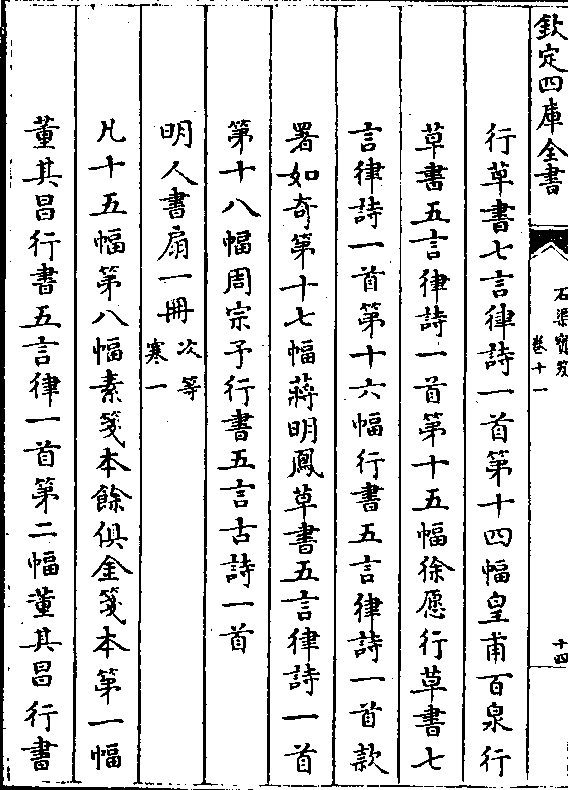 欽定四庫全書
石渠寶笈
卷十一
十四
行草書七言律詩一首第十四幅皇甫百泉行
草書五言律詩一首第十五幅徐愿行草書七
言律詩一首第十六幅行書五言律詩一首款
署如奇第十七幅蔣明鳳草書五言律詩一首
第十八幅周宗予行書五言古詩一首
明人書扇一冊次等
寒一
凡十五幅第八幅素箋本餘俱金箋本第一幅
董其昌行書五言律一首第二幅董其昌行書